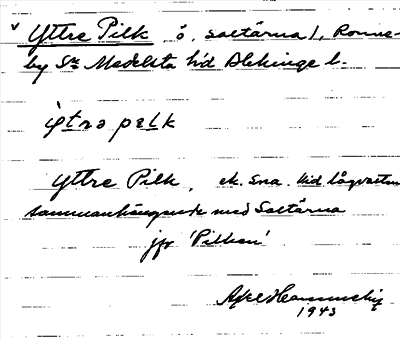 v Yttre Pilk ö, saltärna/, Ronne-
by Sn Medelsta hd Blekinge l.
ẏtrə pɛlk
Yttre Pilk, ek. sna. Vid lågvatten
sammanhängande med Saltärna
jfr 'Pilken'
Axel
1943